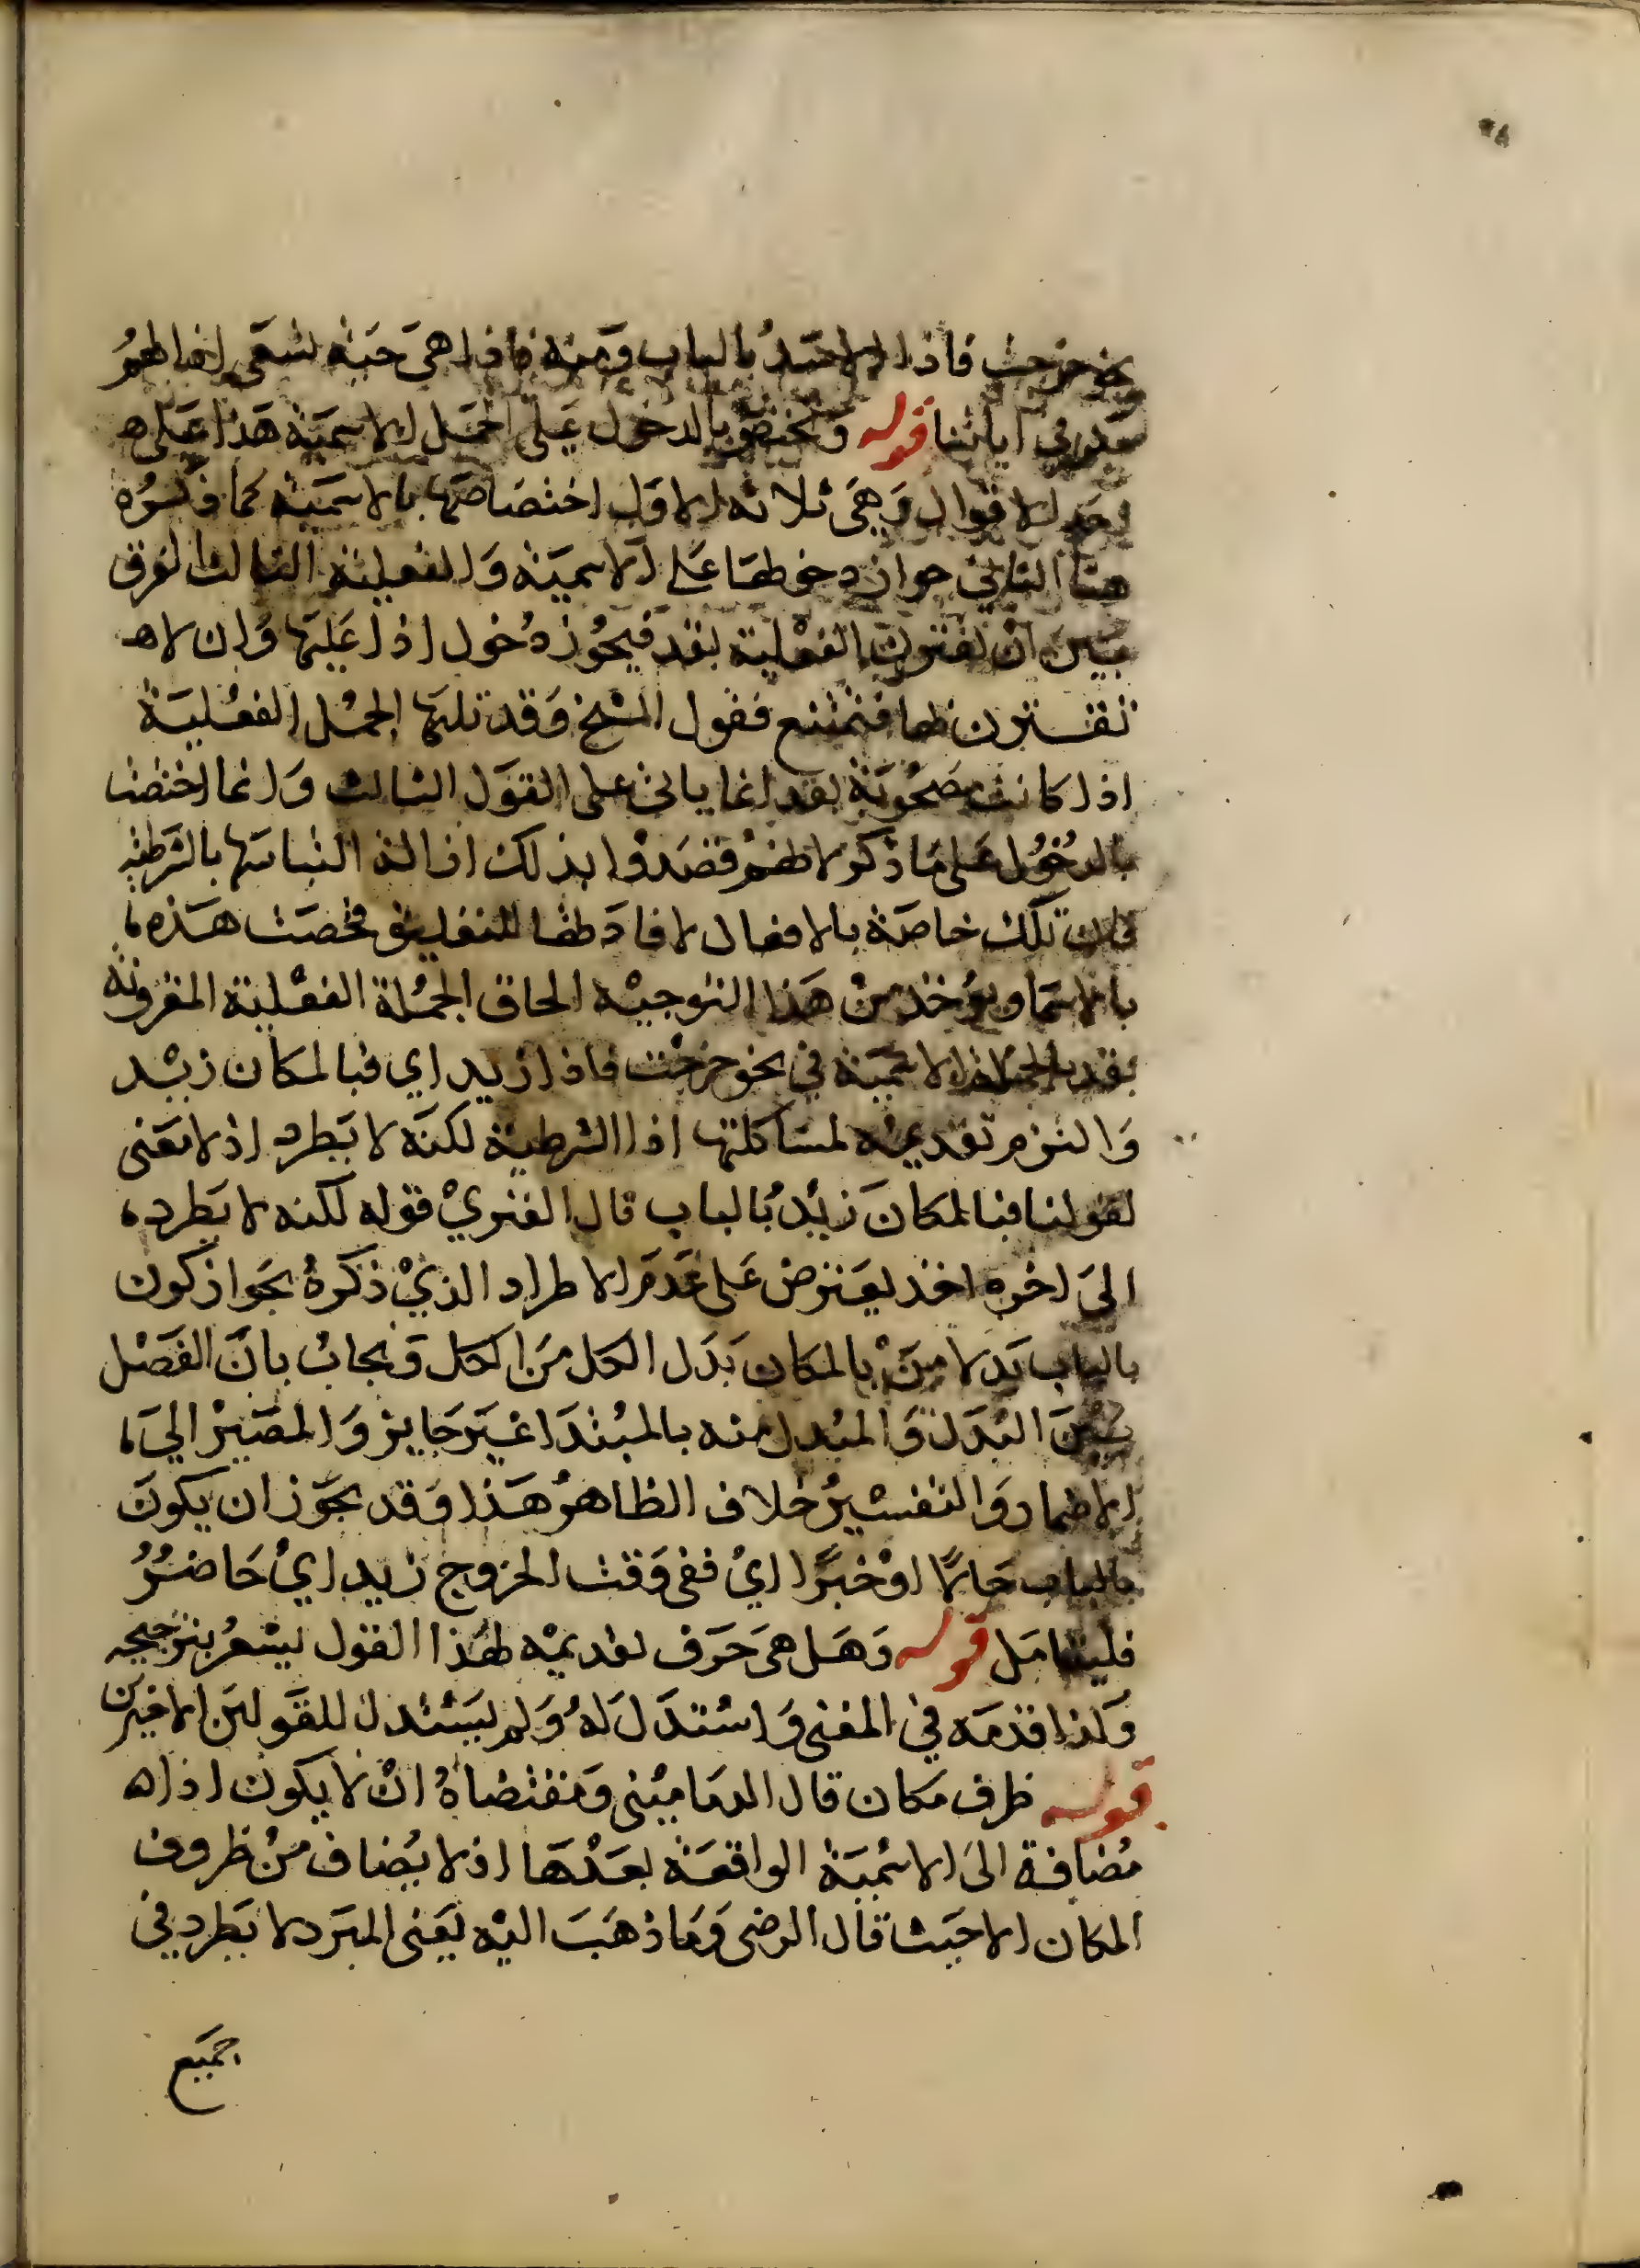 نحو خرجت فاذا الاسد بالباب ومنه فاذا هي حية تسعى اذا لهم
مكر في اياتنا قوله وتختص بالدخول على الجمل الاسمية هذا على
احد الاقوال وهي ثلاثة الاول اختصاصها بالاسمية كما قرره
هنا الثاني جواز دخولها على الاسمية والفعلية الثالث الفرق
بين ان تقترن الفعلية بقد فيجوز دخول اذا عليها وان لا
تقترن بها فتمتنع فقول الشيخ وقد تليها الجمل الفعلية
اذا كانت مصحوبة بقد انما ياتي على القول الثالث وانما اختصت
بالدخول على ما ذكر لانهم قصدوا بذلك ازالة التباسها بالشرطية
فان تلك خاصة بالافعال لافادتها التعليق فخصت هذه
بالاسما ويؤخذ من هذا التوجيه الحاق الجملة الفعلية المقرونة
بقد بالجملة الاسمية في نحو خرجت فاذا زيد اي فبالمكان زيد
والتزم تقديمه لمشاكلتها اذا الشرطية لكنه لا يطرد اذ لا معنى
لقولنا فبالمكان زيد بالباب قال الفنري قوله لكنه لا يطرد
الى اخره اخذ يعترض على عدم الاطراد الذي ذكره بجواز كون
بالباب بدلا من بالمكان بدل الكل من الكل ويجاب بان الفصل
بين البدل والمبدل منه بالمبتدا غير جايز والمصير الي
الاضمار والتفسير خلاف الظاهر هذا وقد يجوز ان يكون
بالباب حالا او خبرا اي ففي وقت الخروج زيد اي حاضر
فليتامل قوله وهل هي حرف تقديمه لهذا القول يشعر بترجيحه
ولذا قدمه في المغني واستدل له ولم يستدل للقولين الاخيرين
قوله ظرف مكان قال الدماميني ومقتضاه ان لا يكون اذا
مضافة الى الاسمية الواقعة بعدها اذ لا يضاف من ظروف
المكان الا حيث قال الرضى وما ذهب اليه يعني المبرد لا يطرد في
جميع